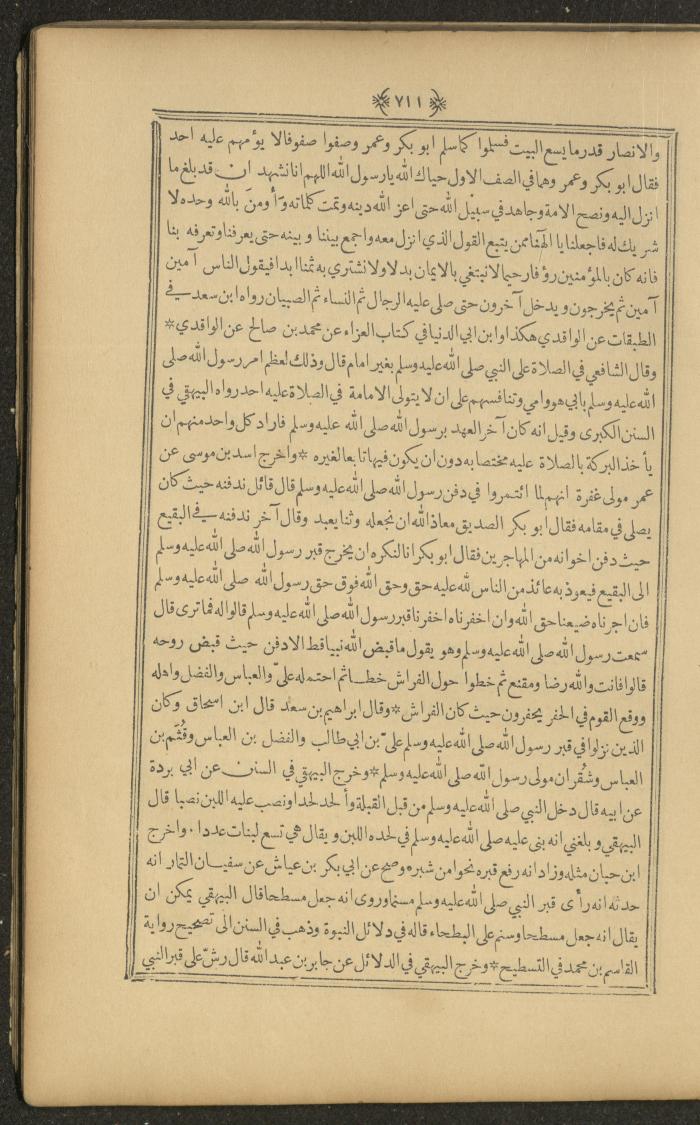 ٧١١
والانصار قدر ما يسع البيت فسلموا كما سلم ابو بكر وعمر وصفوا صفوفا لا يؤمهم عليه احد
فقال ابو بكر وعمر وهما في الصف الاول حياك الله يا رسول الله اللهم انا نشهد ان قد بلغ ما
انزل اليه ونصح الامة وجاهد في سبيل الله حتى اعز الله دينه وتمت كلماته وآومن بالله وحده لا
شريك له فاجعلنا يا الهنا ممن يتبع القول الذي انزل معه واجمع بيننا وبينه حتى يعرفنا وتعرفه بنا
فانه كان بالمؤمنين رؤفا رحيما لا نبتغي بالايمان بدلا ولا نشتري به ثمنا ابدا فيقول الناس آمين
آمين ثم يخرجون ويدخل آخرون حتى صلى عليه الرجال ثم النساء ثم الصبيان رواه ابن سعد في
الطبقات عن الواقدي هكذا وابن ابي الدنيا في كتاب العزاء عن محمد بن صالح عن الواقدي *
وقال الشافعي في الصلاة على النبي صلى الله عليه وسلم بغير امام قال وذلك لعظم امر رسول الله صلى
الله عليه وسلم بابي هو وامي وتنافسهم على ان لا يتولى الامامة في الصلاة عليه احد رواه البيهقي في
السنن الكبرى وقيل انه كان آخر العهد برسول الله صلى الله عليه وسلم فاراد كل واحد منهم ان
يأخذ البركة بالصلاة عليه مختصا به دون ان يكون فيها تابعا لغيره * واخرج اسد بن موسى عن
عمر مولى غفرة انهم لما ائتمروا في دفن رسول الله صلى الله عليه وسلم قال قائل ندفنه حيث كان
يصلى في مقامه فقال ابو بكر الصديق معاذ الله ان نجعله وثنا يعبد وقال آخر ندفنه في البقيع
حيث دفن اخوانه من المهاجرين فقال ابو بكر انا لنكره ان يخرج قبر رسول الله صلى الله عليه وسلم
الى البقيع فيعوذ به عائذ من الناس لله عليه حق وحق الله فوق حق رسول الله صلى الله عليه وسلم
فان اجرناه ضيعنا حق الله وان اخفرناه اخفرنا قبر رسول الله صلى الله عليه وسلم قالوا له فما ترى قال
سمعت رسول الله صلى الله عليه وسلم وهو يقول ما قبض الله نبيا قط الا دفن حيث قبض روحه
قالوا فانت والله رضا ومقنع ثم خطوا حول الفراش خطا ثم احتمله علي والعباس والفضل واهله
ووقع القوم في الحفر يحفرون حيث كان الفراش * وقال ابراهيم بن سعد قال ابن اسحاق وكان
الذين نزلوا في قبر رسول الله صلى الله عليه وسلم عليّ بن ابي طالب والفضل بن العباس وقُثَم بن
العباس وشُقران مولى رسول الله صلى الله عليه وسلم * وخرج البيهقي في السنن عن ابي بردة
عن ابيه قال دخل النبي صلى الله عليه وسلم من قبل القبلة وألحد لحدا ونصب عليه اللبن نصبا قال
البيهقي وبلغني انه بنى عليه صلى الله عليه وسلم في لحده اللبن ويقال هي تسع لبنات عددا . واخرج
ابن حبان مثله وزاد انه رفع قبره نحوا من شبر وصح عن ابي بكر بن عياش عن سفيان التمار انه
حدثه انه رأى قبر النبي صلى الله عليه وسلم مسنما وروى انه جعل مسطحا قال البيهقي يمكن ان
يقال انه جعل مسطحا وسنم على البطحاء قاله في دلائل النبوة وذهب في السنن الى تصحيح رواية
القاسم بن محمد في التسطيح * وخرج البيهقي في الدلائل عن جابر بن عبد الله قال رشّ على قبر النبي